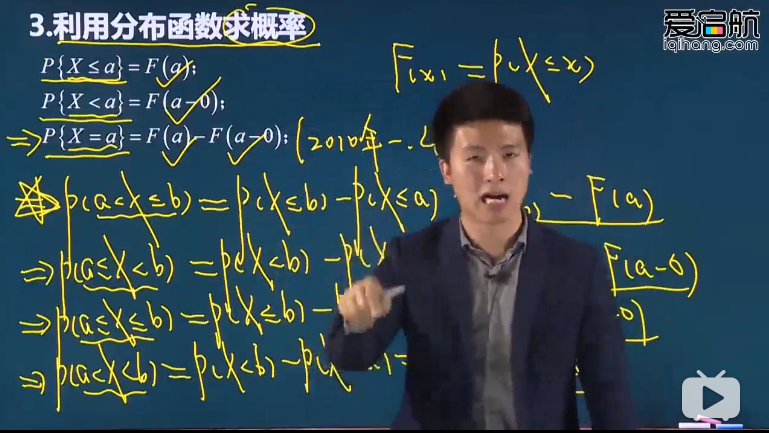 3.利用分布函数求概率
爱启航
iqihang.com
P{X≤a}=F(a);
F(x)=P(X≤x)
P{X<a}=F(a-0);
⇒P{X=a}=F(a)-F(a-0);(2010年一.4
P(a<X≤b)=P(X≤b)-P(X≤a) -F(a)
⇒P(a≤X<b)=P(X<b)-P(X F(a-0)
⇒P(a≤X≤b)=P(X≤b)- 0)
⇒P(a<X<b)=P(X<b)-P(X